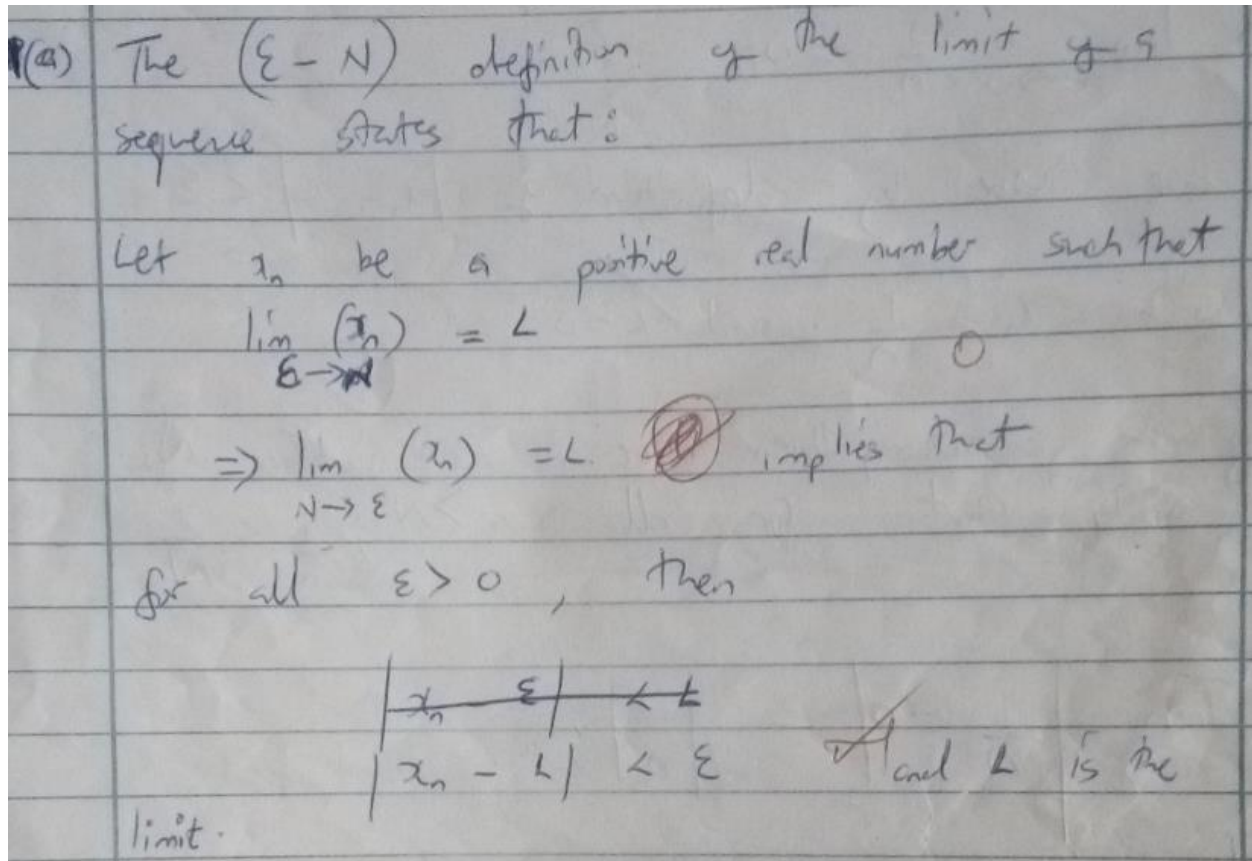 1(a) The (ε - N) definition of the limit of a
sequence states that:
Let xₙ be a positive real number such that
lim (xₙ) = L
ε→N
0
⇒ lim (xₙ) = L implies that
N→ε
for all ε > 0, then
|xₙ ε| < L
|xₙ - L| < ε and L is the
limit.